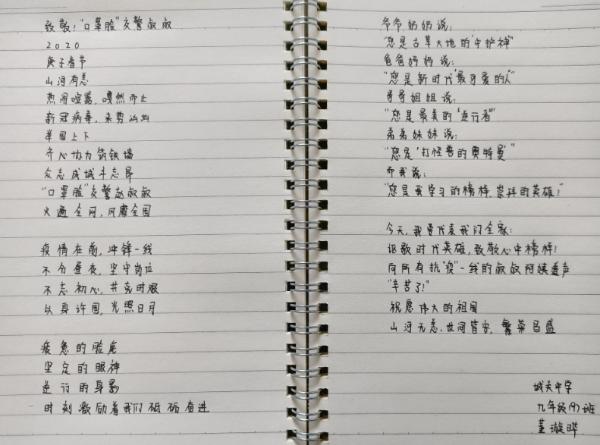 致敬！“口罩脸”交警叔叔
2020
庚子春节
山河有恙
热闹喧嚣，嘎然而止
新冠病毒，来势汹汹
举国上下
齐心协力筑铁墙
众志成城斗志昂
“口罩脸”交警叔叔
火遍全网，风靡全国
疫情在前，冲锋一线
不分昼夜，坚守岗位
不忘初心，共克时艰
以身许国，光照日月
疲惫的脸庞
坚定的眼神
逆行的身影
时刻激励着我们砥砺奋进
爷爷奶奶说：
“您是古草大地的‘守护神’”
爸爸妈妈说：
“您是新时代‘最可爱的人’”
哥哥姐姐说：
“您是最美的‘逆行者’”
弟弟妹妹说：
“您是‘打怪兽的奥特曼’”
而我说：
“您是我学习的榜样，崇拜的英雄！”
今天，我要代表我们全家：
讴歌时代英雄，致敬心中榜样！
向所有抗“疫”一线的叔叔阿姨道声
“辛苦了！”
祝愿伟大的祖国
山河无恙，世间皆安，繁荣昌盛
城关中学
九年级(9)班
董漩晔